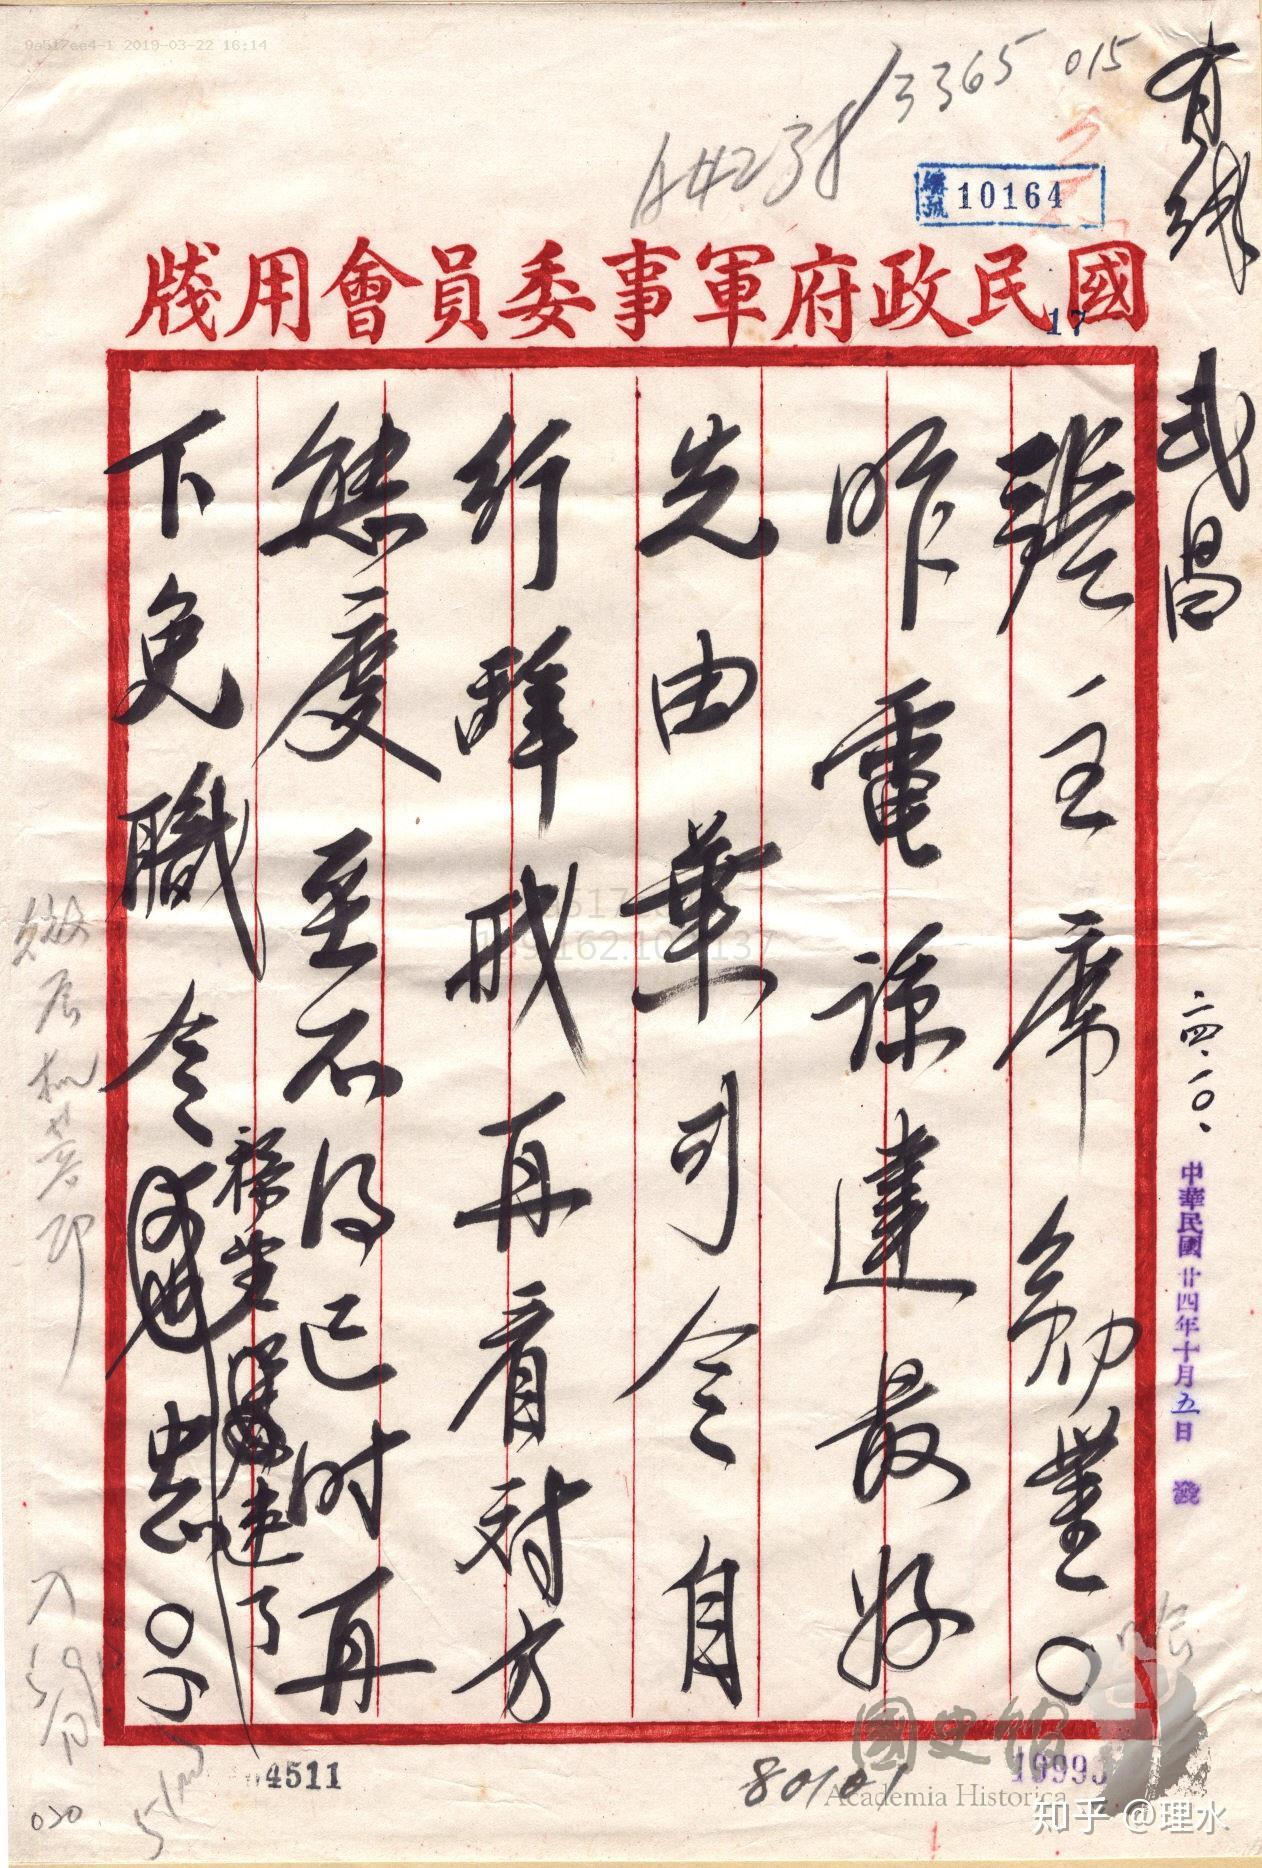 9a517ee4-1 2019-03-22 16:14
13365 015
A4238
編號 10164
國民政府軍事委員會用牋
17
有線 武昌
張主席勛業。
昨電諒達最好
先由華司令自
行辭職再看對方
態度至不得已時再
下免職令
稼堂
達了
中。
二四.一〇.
中華民國廿四年十月五日 發
04511
80101
19993
國史館
Academia Historica
知乎 @理水